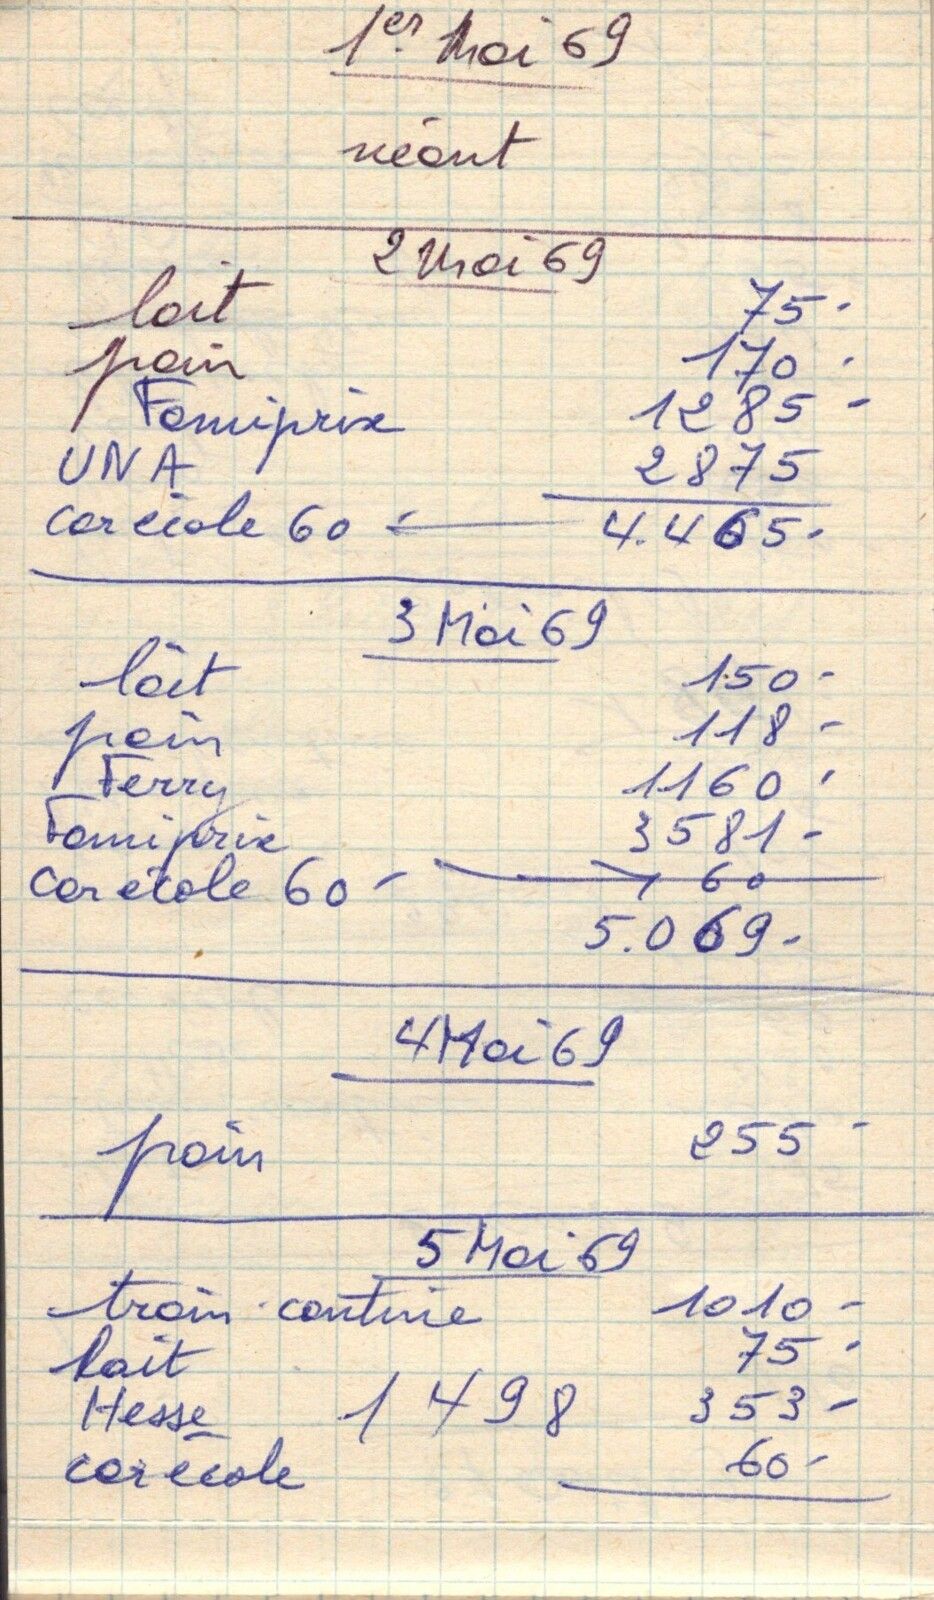 1er Mai 69
néant
2 Mai 69
lait 75-
pain 170-
Famiprix 1285-
UNA 2875
car école 60 4.465-
3 Mai 69
lait 150-
pain 118-
Ferry 1160-
Famiprix 3581-
car école 60- 60
5.069-
4 Mai 69
pain 255-
5 Mai 69
train cantine 1010-
lait 75-
Hesse 1498 353-
car école 60-